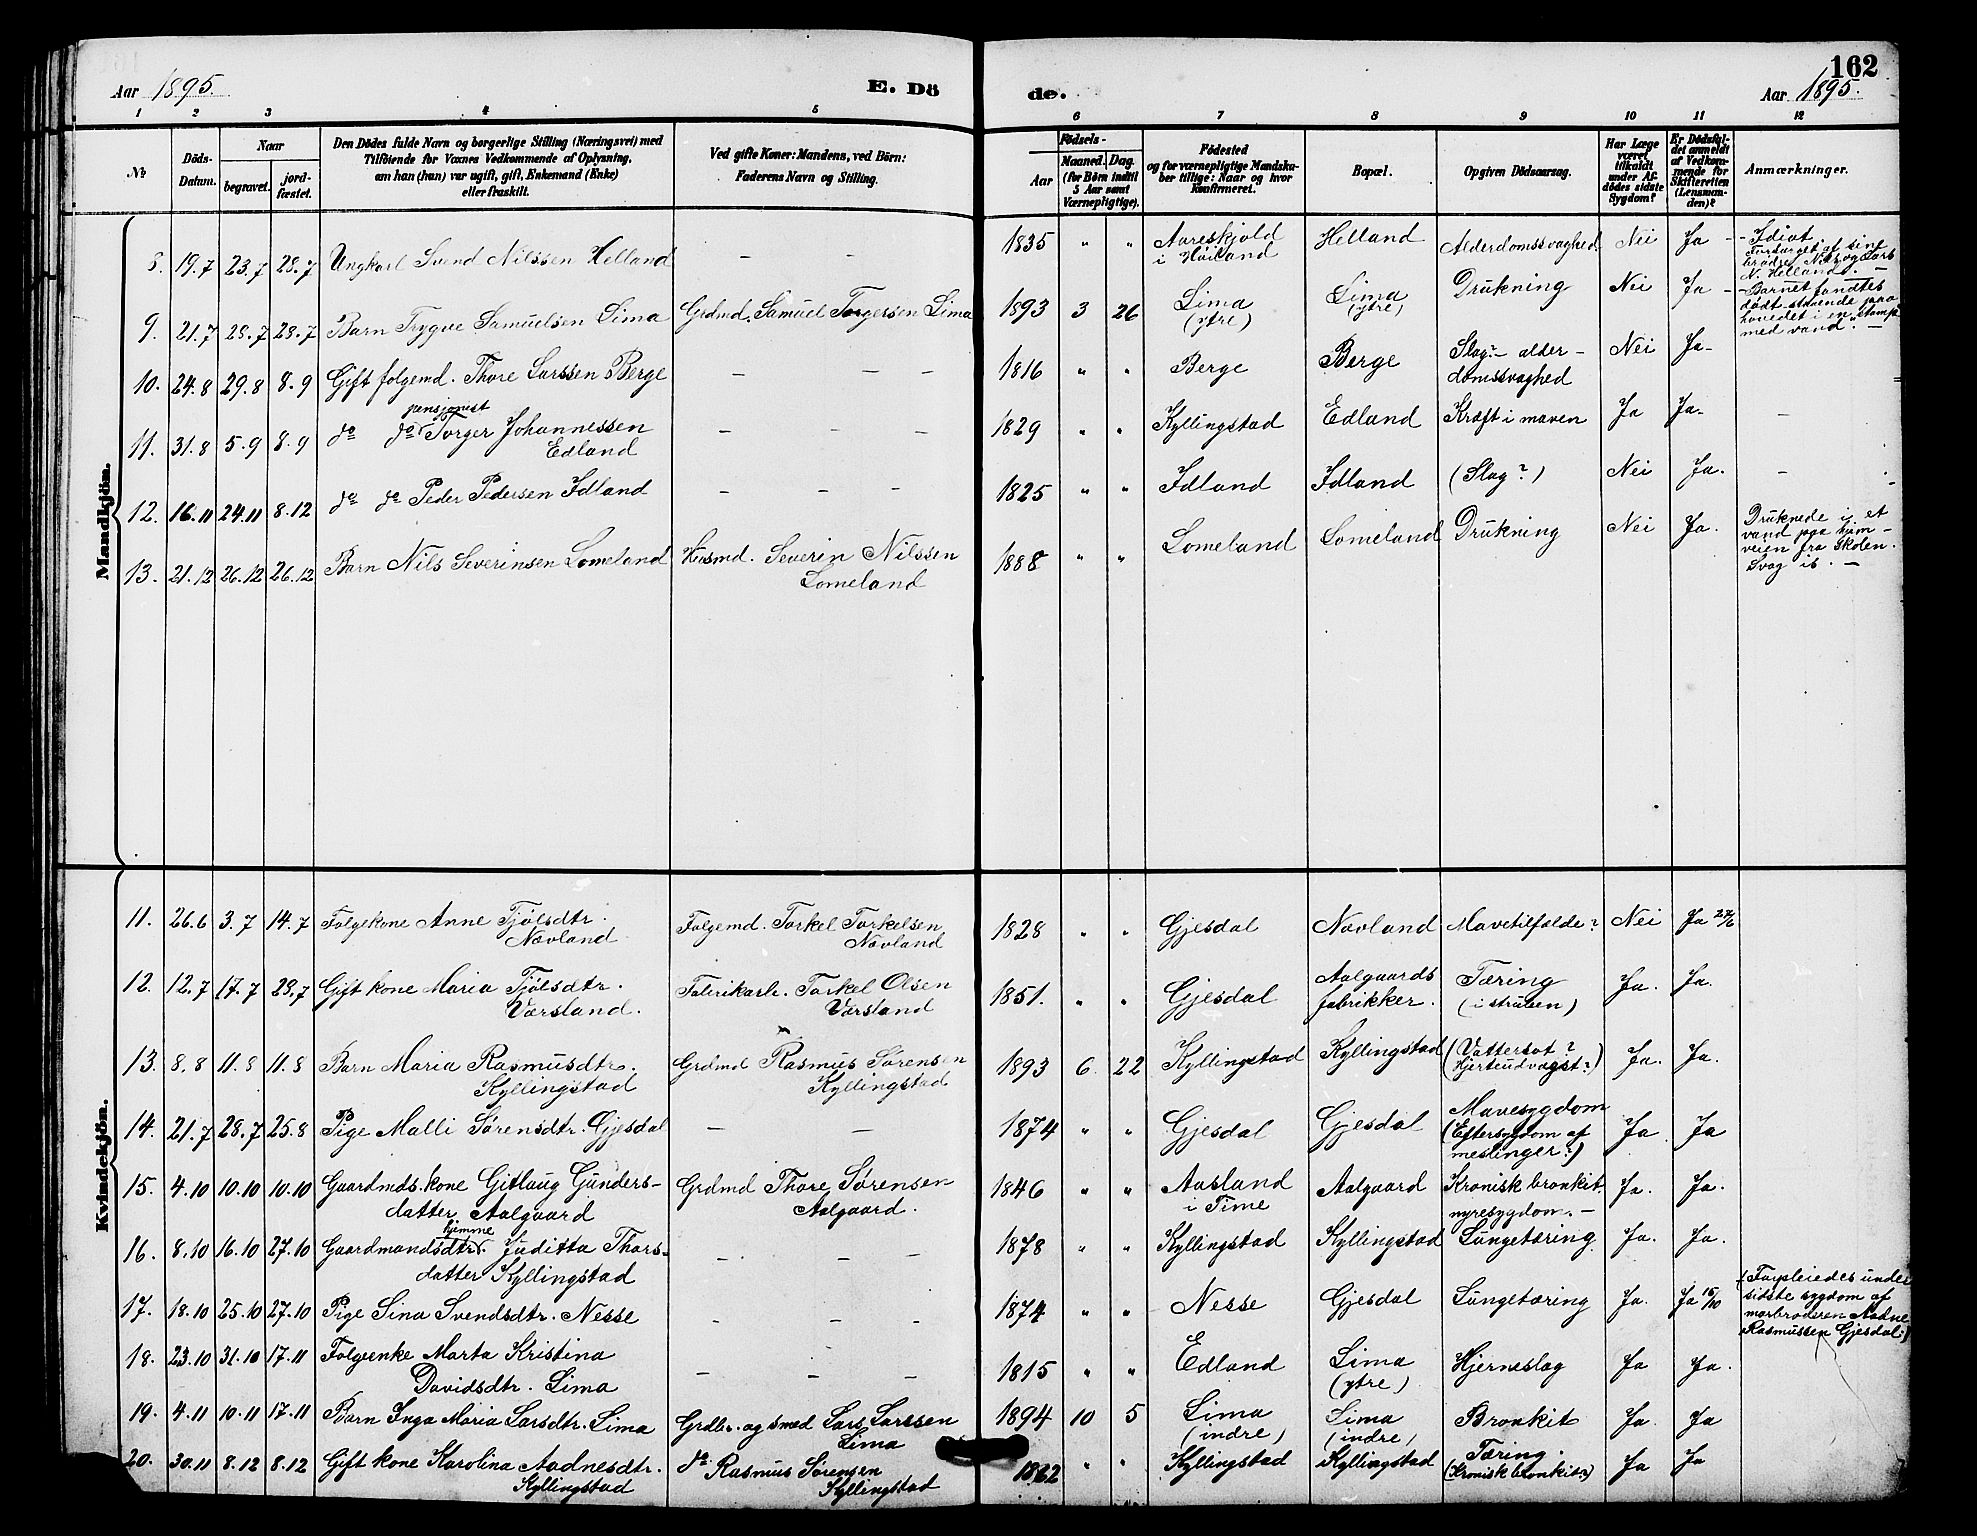 Aar 1895.
E. Dö
de.
162
Aar 1895.
1 2 3 4 5 6 7 8 9 10 11 12
№
Döds-
Datum.
Naar
begravet.
jord-
fæstet.
Den Dödes fulde Navn og borgerlige Stilling (Næringsvei) med
Tilföiende for Voxnes Vedkommende af Oplysning,
om han (hun) var ugift, gift, Enkemand (Enke)
eller fraskilt.
Ved gifte Koner: Mandens, ved Börn:
Faderens Navn og Stilling.
Födsels-
Aar
Maaned. Dag.
(for Börn indtil
5 Aar samt
Værnepligtige).
Födested
og for værnepligtige Mandska-
ber tillige: Naar og hvor
Konfirmeret.
Bopæl.
Opgiven Dödsaarsag.
Har Læge
været
tilkaldt
under Af-
dödes sidste
Sygdom?
Er Dödsfal-
det anmeldt
af Vedkom-
mende for
Skifteretten
(Lensman-
den)?
Anmærkninger.
Mandkjön.
8. 19.7 23.7 28.7 Ungkarl Svend Nilssen Helland — — 1835 " " Aareskjold
i Høiland Helland Alderdomssvaghed. Nei Ja - - Idiot.
Forsørget af sine
brødre Nils og Lars
N. Helland. —
9. 21.7 28.7 28.7 Barn Trygve Samuelsen Lima Grdmd. Samuel Torgersen Lima 1893 3 26 Lima
(ytre) Lima
(ytre) Drukning Nei Ja - - Barnet fandtes
dødt staaende paa
hovedet i en stamp
med vand. —
10. 24.8 29.8 8.9 Gift folgemd. Thore Larssen Berge — — — 1816 " " Berge Berge Slag? - alder-
domssvaghed Nei Ja-
11. 31.8 5.9 8.9 do do pensjonist Torger Johannessen
Edland — — — 1829 " " Kyllingstad Edland Kræft i maven Ja Ja- —
12. 16.11 24.11 8.12 do do Peder Pedersen Idland — — — 1825 " " Idland Idland (Slag?) Nei Ja. —
13. 21.12 26.12 26.12 Barn Nils Severinsen Lomeland Husmd. Severin Nilssen
Lomeland 1888 " " Lomeland Lomeland Drukning Nei Ja. Druknede i et
vand paa hjem-
veien fra Skolen.
Svag is. —
Kvindekjön.
11. 26.6 3.7 14.7 Folgekone Anne Tjølsdtr.
Nævland Folgemd. Torkel Torkelsen
Nævland 1828 " " Gjesdal Nævland Mavetilfælde? Nei Ja 27/6
12. 12.7 17.7 28.7 Gift kone Maria Tjølsdtr.
Værsland. Fabrikarb. Torkel Olsen
Værsland 1851. " " Gjesdal Aalgaards
fabrikker. Tæring
(i struben) Ja. Ja.
13. 8.8 11.8 11.8 Barn Maria Rasmusdtr.
Kyllingstad Grdmd Rasmus Sørensen
Kyllingstad 1893 6 22 Kyllingstad Kyllingstad (Vattersot?
Hjerteudvægst?) Ja. Ja.
14. 21.7 28.7 25.8 Pige Malli Sørensdtr. Gjesdal — — 1874 " " Gjesdal Gjesdal Mavesygdom
(Eftersygdom af
meslinger?) Ja Ja
15. 4.10 10.10 10.10 Gaardmds. kone Gitlaug Gunders-
datter Aalgaard Grdmd Thore Sørensen
Aalgaard. 1846 " " Aasland
i Time Aalgaard Kronisk bronkit.
nyresygdom. — Ja. Ja.
16. 8.10 16.10 27.10 Gaardmandsdtr. hjemme Juditta Thors-
datter Kyllingstad — — — 1878 " " Kyllingstad Kyllingstad Lungetæring Ja. Ja.
17. 18.10 25.10 27.10 Pige Sina Svendsdtr. Nesse — — — 1874 " " Nesse Gjesdal Lungetæring Ja. Ja 15/10 (Forpleiedes under
sidste sygdom af
morbroderen Aadne
Rasmussen Gjesdal.)
18. 23.10 31.10 17.11 Folgeenke Marta Kristina
Davidsdtr. Lima — — — 1815 " " Edland Lima
(ytre) Hjerneslag Ja Ja.
19. 4.11 10.11 17.11 Barn Inga Maria Larsdtr. Lima Grdbr. og smed Lars Larssen
Lima 1894 10 5 Lima
(indre) Lima
(indre) Bronkit Ja. Ja
20. 30.11 8.12 8.12 Gift kone Karolina Aadnesdtr.
Kyllingstad do Rasmus Sørensen
Kyllingstad 1862 " " Kyllingstad Kyllingstad Tæring.
(Kronisk bronkit?) Ja Ja